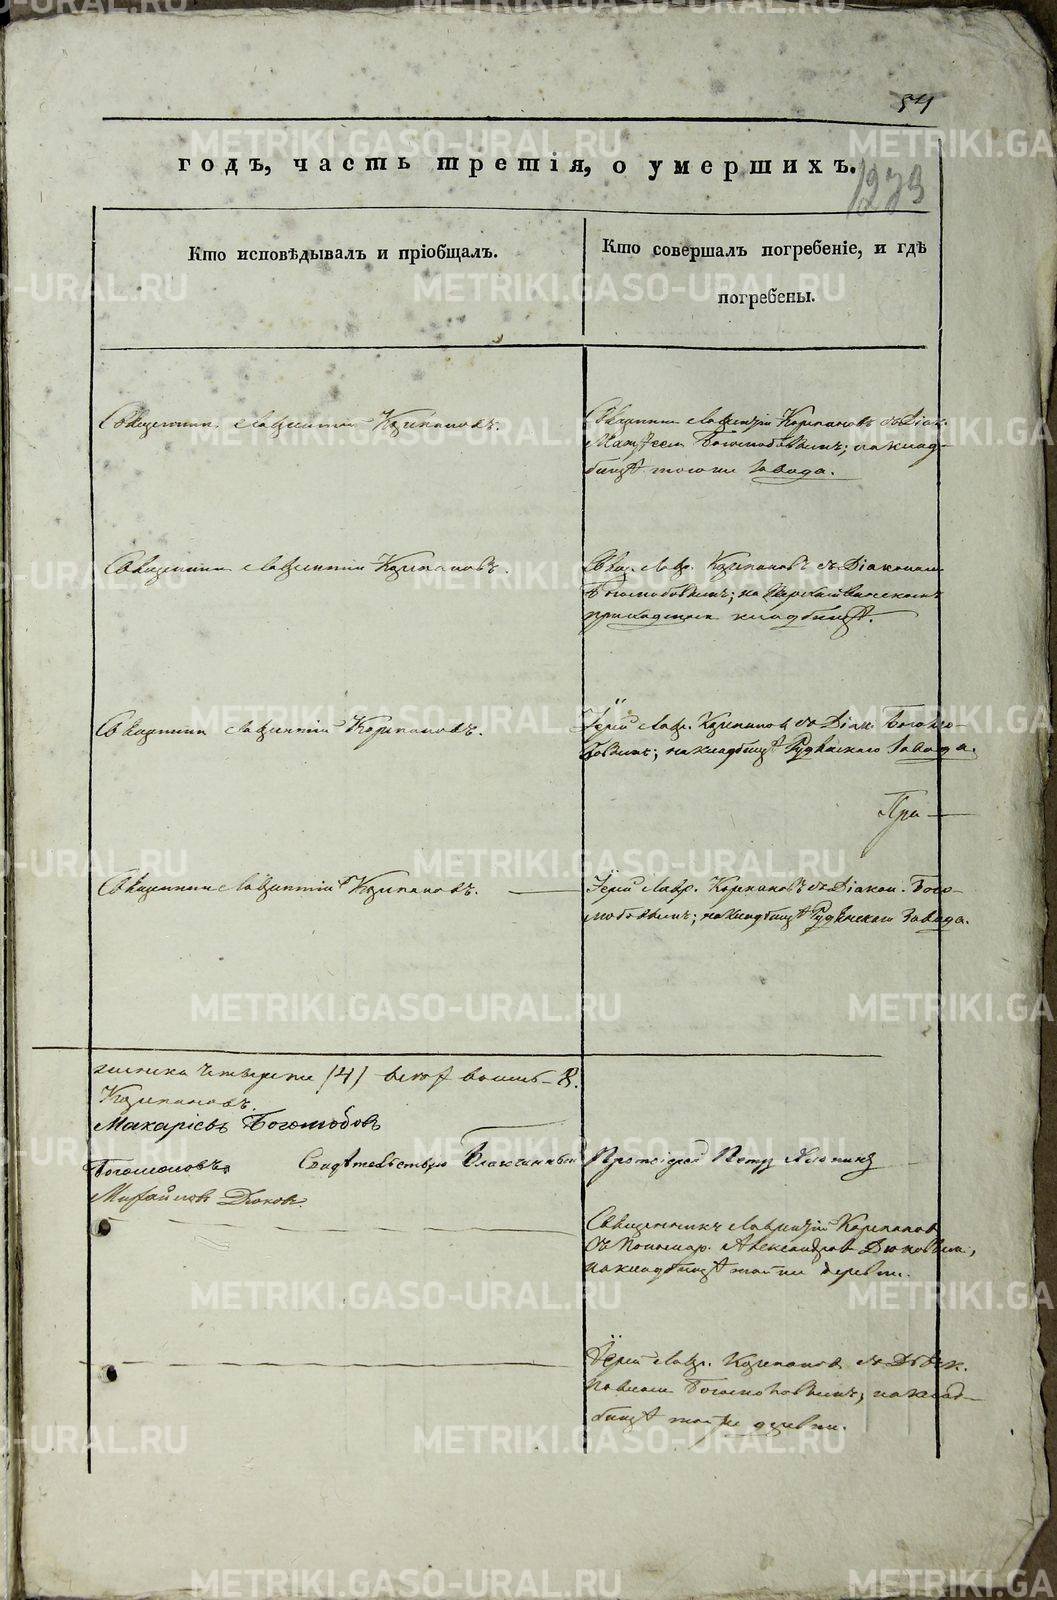 54
годъ, часть третія, о умершихъ.
1273
Кто исповѣдывалъ и пріобщалъ.
Кто совершалъ погребеніе, и гдѣ
погребены.
Священникъ Лаврентій Карпановъ.
Священникъ Лаврентій Карпановъ съ Діак.
Матѳеемъ Боголюбовымъ; на клад-
бищѣ того же Завода.
Священникъ Лаврентій Карпановъ.
Свящ. Лавр. Карпановъ съ Діакономъ
Боголюбовымъ; на
приходскомъ кладбищѣ.
Священникъ Лаврентій Карпановъ.
Іерей Лавр. Карпановъ съ Діак. Боголю-
бовымъ; на кладбищѣ Рудянскаго Завода.
При
Священникъ Лаврентій Карпановъ.
Іерей Лавр. Карпановъ съ Діакон. Бого-
любовымъ; на кладбищѣ Рудянскаго Завода.
четыре /4/ 8.
Карпановъ.
Макарій Боголюбовъ
Свидѣтельствовалъ Благочинный Протоіерей Петръ
Михайловъ
Священникъ Лаврентій Карпановъ
съ Пономар. Александромъ
на кладбищѣ той же деревни.
Іерей Лавр. Карпановъ съ
Боголюбовымъ, на клад-
бищѣ той же деревни.
METRIKI.GASO-URAL.RU